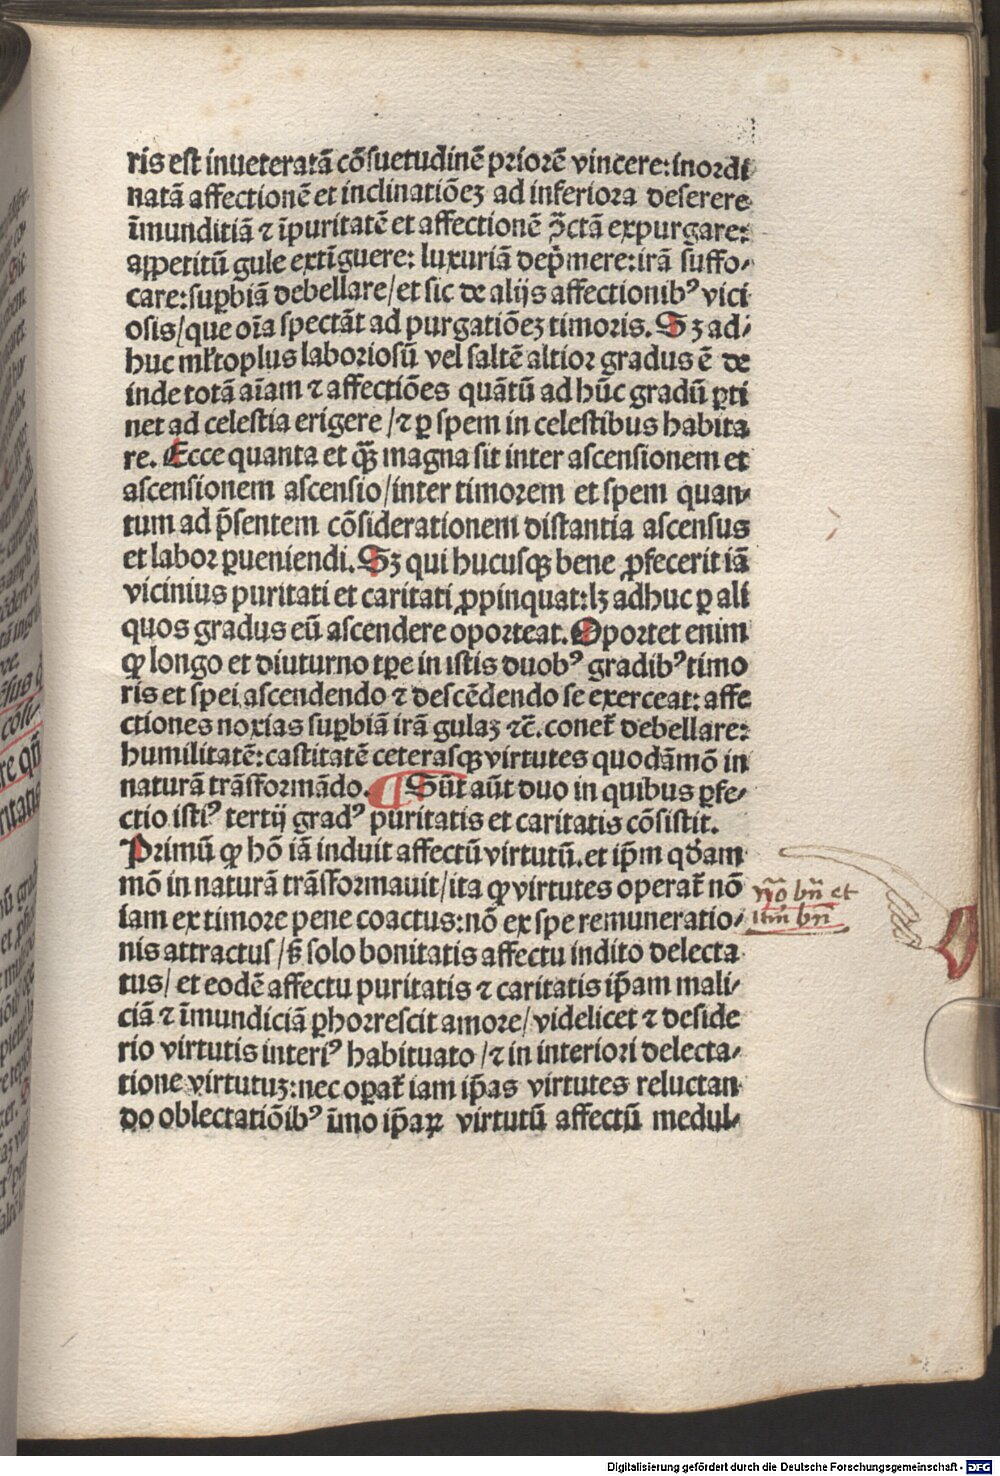 ris est inueteratā cōsuetudinē priorē vincere: inordi
natā affectionē et inclinatiōeꝫ ad inferiora deserere
īmunditiā ⁊ īpuritatē et affectionē ꝯ̄ctā expurgare:
appetitū gule extīguere: luxuriā dep̄mere: irā suffo⸗
care: suꝑbiā debellare/ et sic de alijs affectionibꝰ vici
osis/ que oīa spectāt ad purgatiōeꝫ timoris. Sꝫ ad⸗
huc mł'toplus laboriosū vel saltē altior gradus ē de
inde totā aīam ⁊ affectiōes quātū ad hūc gradū ꝑti
net ad celestia erigere /⁊ ꝑ spem in celestibus habita
re. Ecce quanta et q̄ꝫ magna sit inter ascensionem et
ascensionem ascensio/ inter timorem et spem quan⸗
tum ad p̄sentem cōsiderationem distantia ascensus
et labor ꝑueniendi. Sꝫ qui hucusqꝫ bene ꝓfecerit iā
vicinius puritati et caritati ꝓpinquat: lꝫ adhuc ꝑ ali
quos gradus eū ascendere oporteat. Oportet enim
ꝙ longo et diuturno tꝑe in istis duobꝰ gradibꝰ timo
ris et spei ascendendo ⁊ descēdendo se exerceat: affe
ctiones noxias suꝑbiā irā gulaꝫ ⁊c̄. coneť debellare:
humilitatē: castitatē ceterasqꝫ virtutes quodāmō in
naturā trāsformādo. ¶ Sūt aūt duo in quibus ꝑfe⸗
ctio istiꝰ tertij gradꝰ puritatis et caritatis cōsistit.
Primū ꝙ hō iā induit affectū virtutū. et ip̄m qdam
mō in naturā trāsformauit/ ita ꝙ virtutes operať nō
iam ex timore pene coactus: nō ex spe remuneratio⸗
nis attractus/ s̄ solo bonitatis affectu indito delecta
tus/ et eodē affectu puritatis ⁊ caritatis ip̄am mali⸗
ciā ⁊ īmundiciā ꝑhorrescit amore/ videlicet ⁊ deside
rio virtutis interiꝰ habituato /⁊ in interiori delecta⸗
tione virtutuꝫ: nec oꝑať iam ip̄as virtutes reluctan
do oblectatiōibꝰ īmo ip̄aꝝ virtutū affectū medul⸗
bn̄ et
bn̄
Digitalisierung gefördert durch die Deutsche Forschungsgemeinschaft - DFG